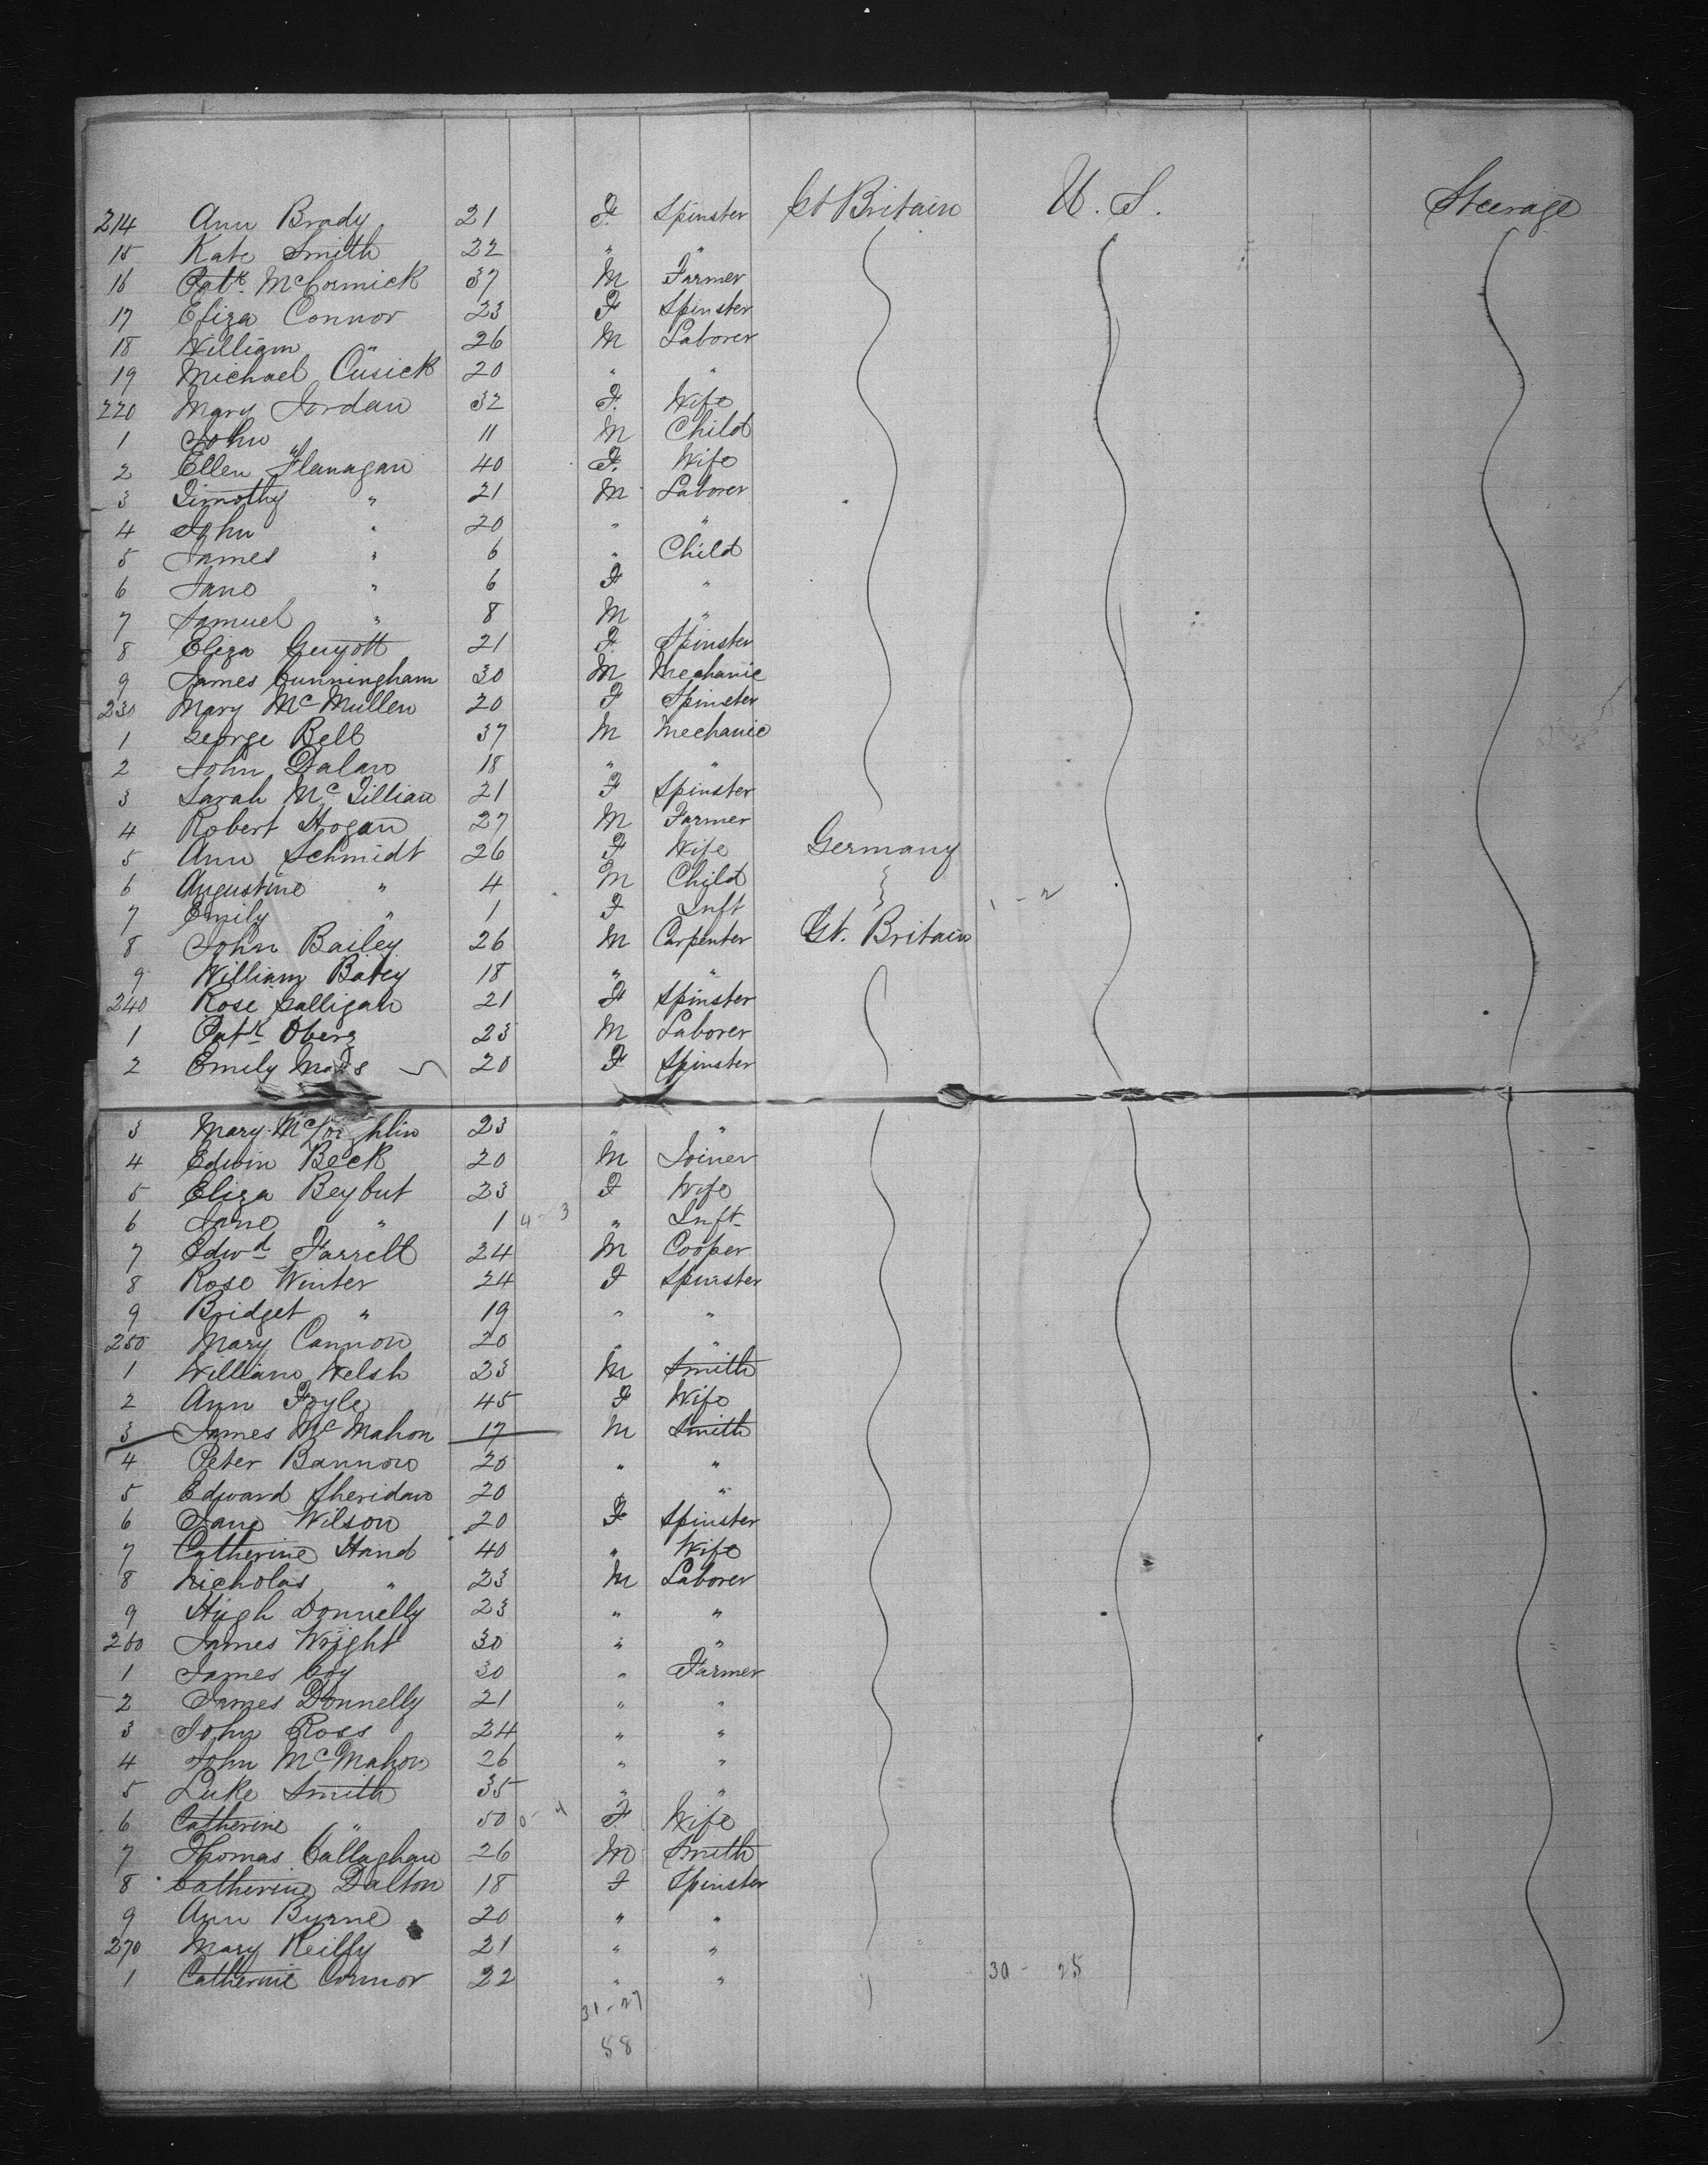 214 Ann Brady 21 F. Spinster Gt Britain U. S. Steerage
15 Kate Smith 22 " "
16 Patk. McCormick 37 M Farmer
17 Eliza Connor 23 F Spinster
18 William " 26 M Laborer
19 Michael Cusick 20 " "
220 Mary Jordan 32 F. Wife
1 John " 11 M Child
2 Ellen Flanagan 40 F. Wife
3 Timothy " 21 M Laborer
4 John " 20 " "
5 James " 6 " Child
6 Jane " 6 F "
7 Samuel " 8 M "
8 Eliza Guyott 21 F. Spinster
9 James Cunningham 30 M Mechanic
230 Mary McMullen 20 F Spinster
1 George Bell 37 M Mechanic
2 John Dalan 18 " "
3 Sarah Mc Tillian 21 F Spinster
4 Robert Hogan 27 M Farmer
5 Ann Schmidt 26 F Wife Germany
6 Augustine " 4 M Child 1 - 2
7 Emily " 1 F Inft
8 John Bailey 26 M Carpenter Gt. Britain
9 William Batey 18 " "
240 Rose Galligan 21 F Spinster
1 Patk 23 M Laborer
2 Emily 20 F Spinster
3 Mary 23 " "
4 Edwin Beck 20 M Joiner
5 Eliza Beybut 23 F Wife
6 Jane " 1 4 - 3 " Inft
7 Edwd Farrell 24 M Cooper
8 Rose Winter 24 F Spinster
9 Bridget " 19 " "
250 Mary Cannon 20 " "
1 William Welsh 23 M Smith
2 Ann Foyle 45 F Wife
3 James McMahon 17 M Smith
4 Peter Bannon 20 " "
5 Edward Sheridan 20 " "
6 Jane Wilson 20 F Spinster
7 Catherine Hand 40 " Wife
8 Nicholas " 23 M Laborer
9 Hugh Donnelly 23 " "
260 James Wright 30 " "
1 James Coy 30 " Farmer
2 James Donnelly 21 " "
3 John Ross 24 " "
4 John McMahon 26 " "
5 Luke Smith 35 " "
6 Catherine " 50 F Wife
7 Thomas Callaghan 26 M Smith
8 Catherine Dalton 18 F Spinster
9 Ann Byrne 20 " "
270 Mary Reilly 21 " "
1 Catherine Connor 22 " " 30 - 25
31 - 27
58